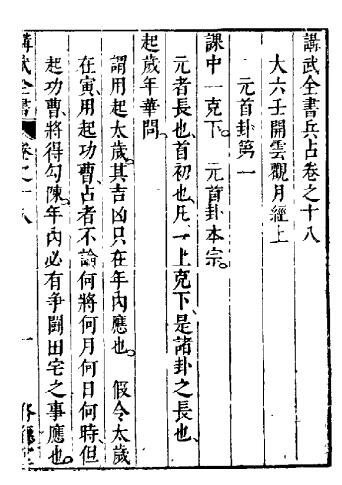 講武全書兵占卷之十八
大六壬開雲觀月經上
元首卦第一
課中一克下。　元首卦本宗。
元者長也、首初也、凡一上克下、是諸卦之長也、
起歲年華問。
謂用起太歲。其吉凶只在年內應也。　假令太歲
在寅、用起功曹、占者不論何將何月何日何時、但
起功曹、將得勾陳。年內必有爭鬬田宅之事應也。
講武全書　卷之十八　一